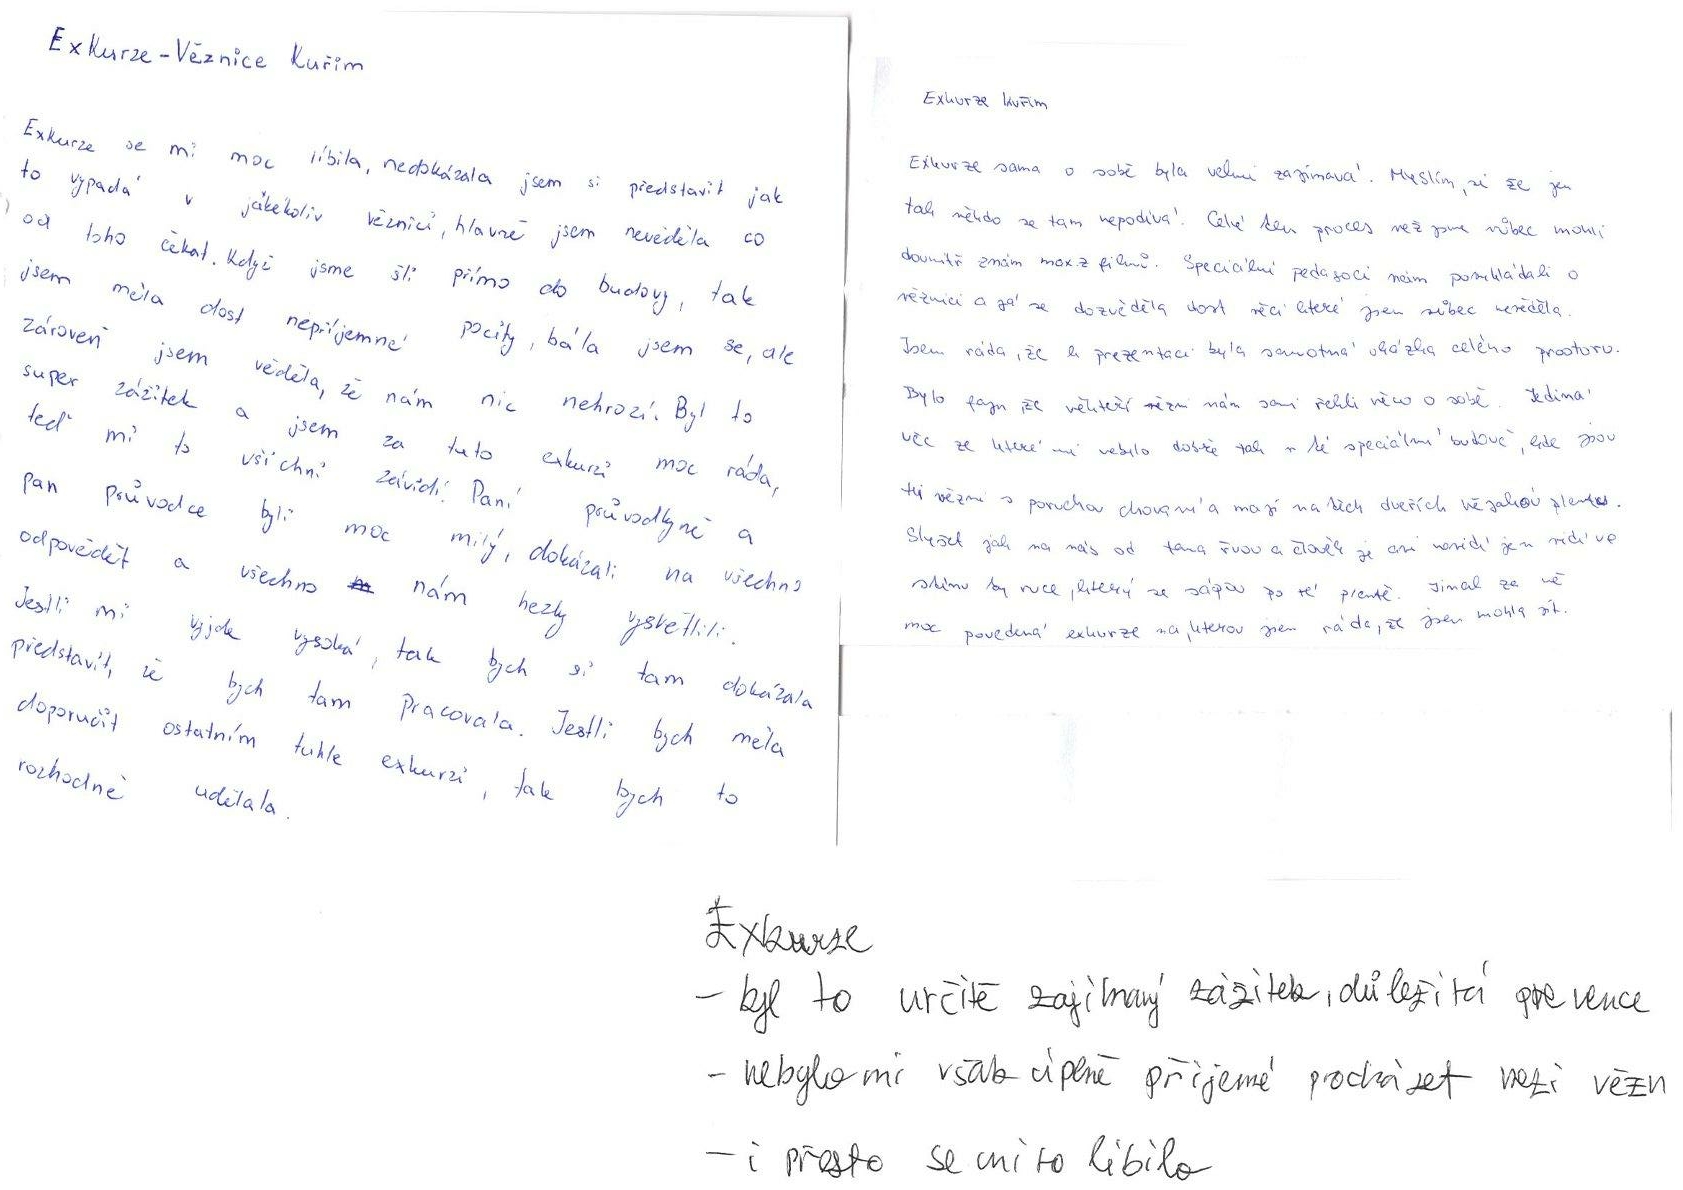 Exkurze - Věznice Kuřim
Exkurze se mi moc líbila, nedokázala jsem si představit jak
to vypadá v jakékoliv věznici, hlavně jsem nevěděla co
od toho čekat. Když jsme šli přímo do budovy, tak
jsem měla dost nepříjemné pocity, bála jsem se, ale
zároveň jsem věděla, že nám nic nehrozí. Byl to
super zážitek a jsem za tuto exkurzi moc ráda,
teď mi to všichni závidí. Paní průvodkyně a
pan průvodce byli moc milý, dokázali na všechno
odpovědět a všechno nám hezky vysvětlili.
Jestli mi vyjde vysoká, tak bych si tam dokázala
představit, že bych tam pracovala. Jestli bych měla
doporučit ostatním tuhle exkurzi, tak bych to
rozhodně udělala.
Exkurze Kuřim
Exkurze sama o sobě byla velmi zajímavá. Myslím, si že jen
tak někdo se tam nepodívá. Celý ten proces než jsme vůbec mohli
dovnitř znám max. z filmů. Speciální pedagoci nám povykládali o
věznici a já se dozvěděla dost věcí které jsem vůbec nevěděla.
Jsem ráda, že k prezentaci byla samotná ukázka celého prostoru.
Bylo fajn že někteří vězni nám sami řekli něco o sobě. Jediná
věc ze které mi nebylo dobře tak v té speciální budově, kde jsou
ti vězni s poruchou chování a mají na těch dveřích nějakou plentu.
Slyšet jak na nás od tama řvou a člověk je ani nevidí jen vidí ve
stínu ty ruce, který se sápou po té plentě. Jinak za mě
moc povedená exkurze na, kterou jsem ráda, že jsem mohla jít.
Exkurze
- byl to určitě zajímavý zážitek, důležitá prevence
- nebylo mi však úplně příjemé procházet mezi vězn
- i přesto se mi to líbilo